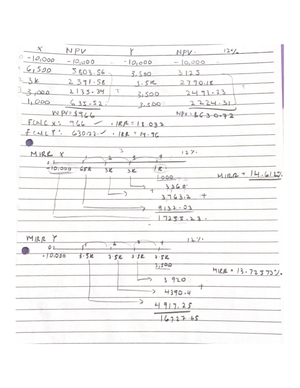 X NPV Y NPV 12%
-10,000 -10,000 -10,000 -10,000
6,500 5803.56 3,500 3125
3K 2391.58 3.5K 2790.18
3,000 2135.34 3,500 2491.23
1,000 635.52 3,500 2224.31
NPV = 966 NPV = 630.72
966 IRR = 18.03%
630.72 IRR = 14.96
MIRR X 12%
0 1 2 3 4
-10,000 6.5K 3K 3K 1K
1000
3360 MIRR = 14.61%
3763.2 +
9132.03
17255.23
MIRR Y
0 12%
-10,000 3.5K 3.5K 3.5K 3.5K
3,500
3920 MIRR = 13.7297%
4390.4 +
4917.25
16727.65